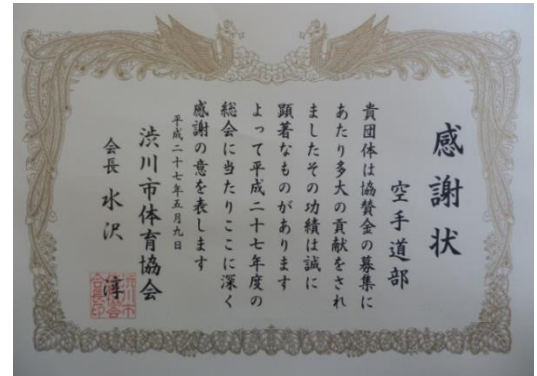 感謝状
空手道部
貴団体は協賛金の募集に
あたり多大の貢献をされ
ましたその功績は誠に
顕著なものがあります
よって平成二十七年度の
総会に当たりここに深く
感謝の意を表します
平成二十七年五月九日
渋川市体育協会
会長 水沢 淳